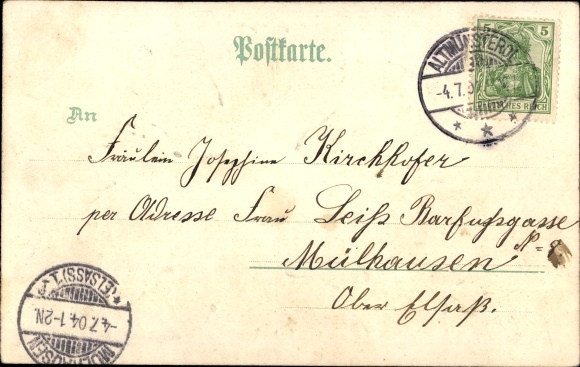 Postkarte.
ALTMÜNSTEROL
-4.7.
5
DEUTSCHES REICH
An
Fräulein Josephine Kirchhofer
per Adresse Frau Leiß Barfußgasse
No 8
Mülhausen
Ober Elsaß.
MÜLHAUSEN
-4.7.04.1-2N.
(ELSASS) 1